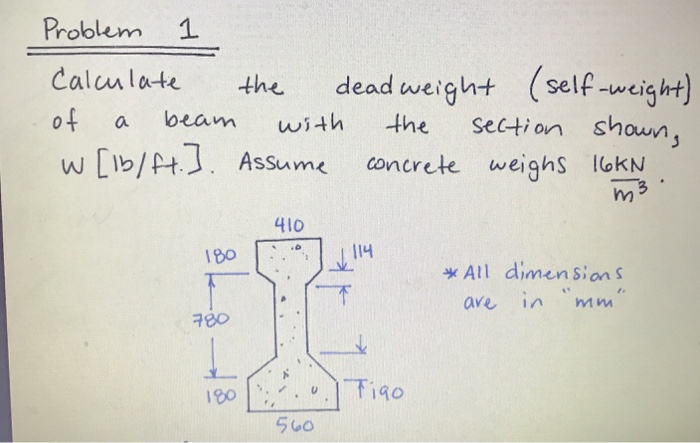 Problem 1
Calculate the deadweight (self-weight)
of a beam with the section shown,
W [lb/ft.]. Assume concrete weighs 16KN/m³.
410
180
114
* All dimensions
are in "mm"
780
180
190
560